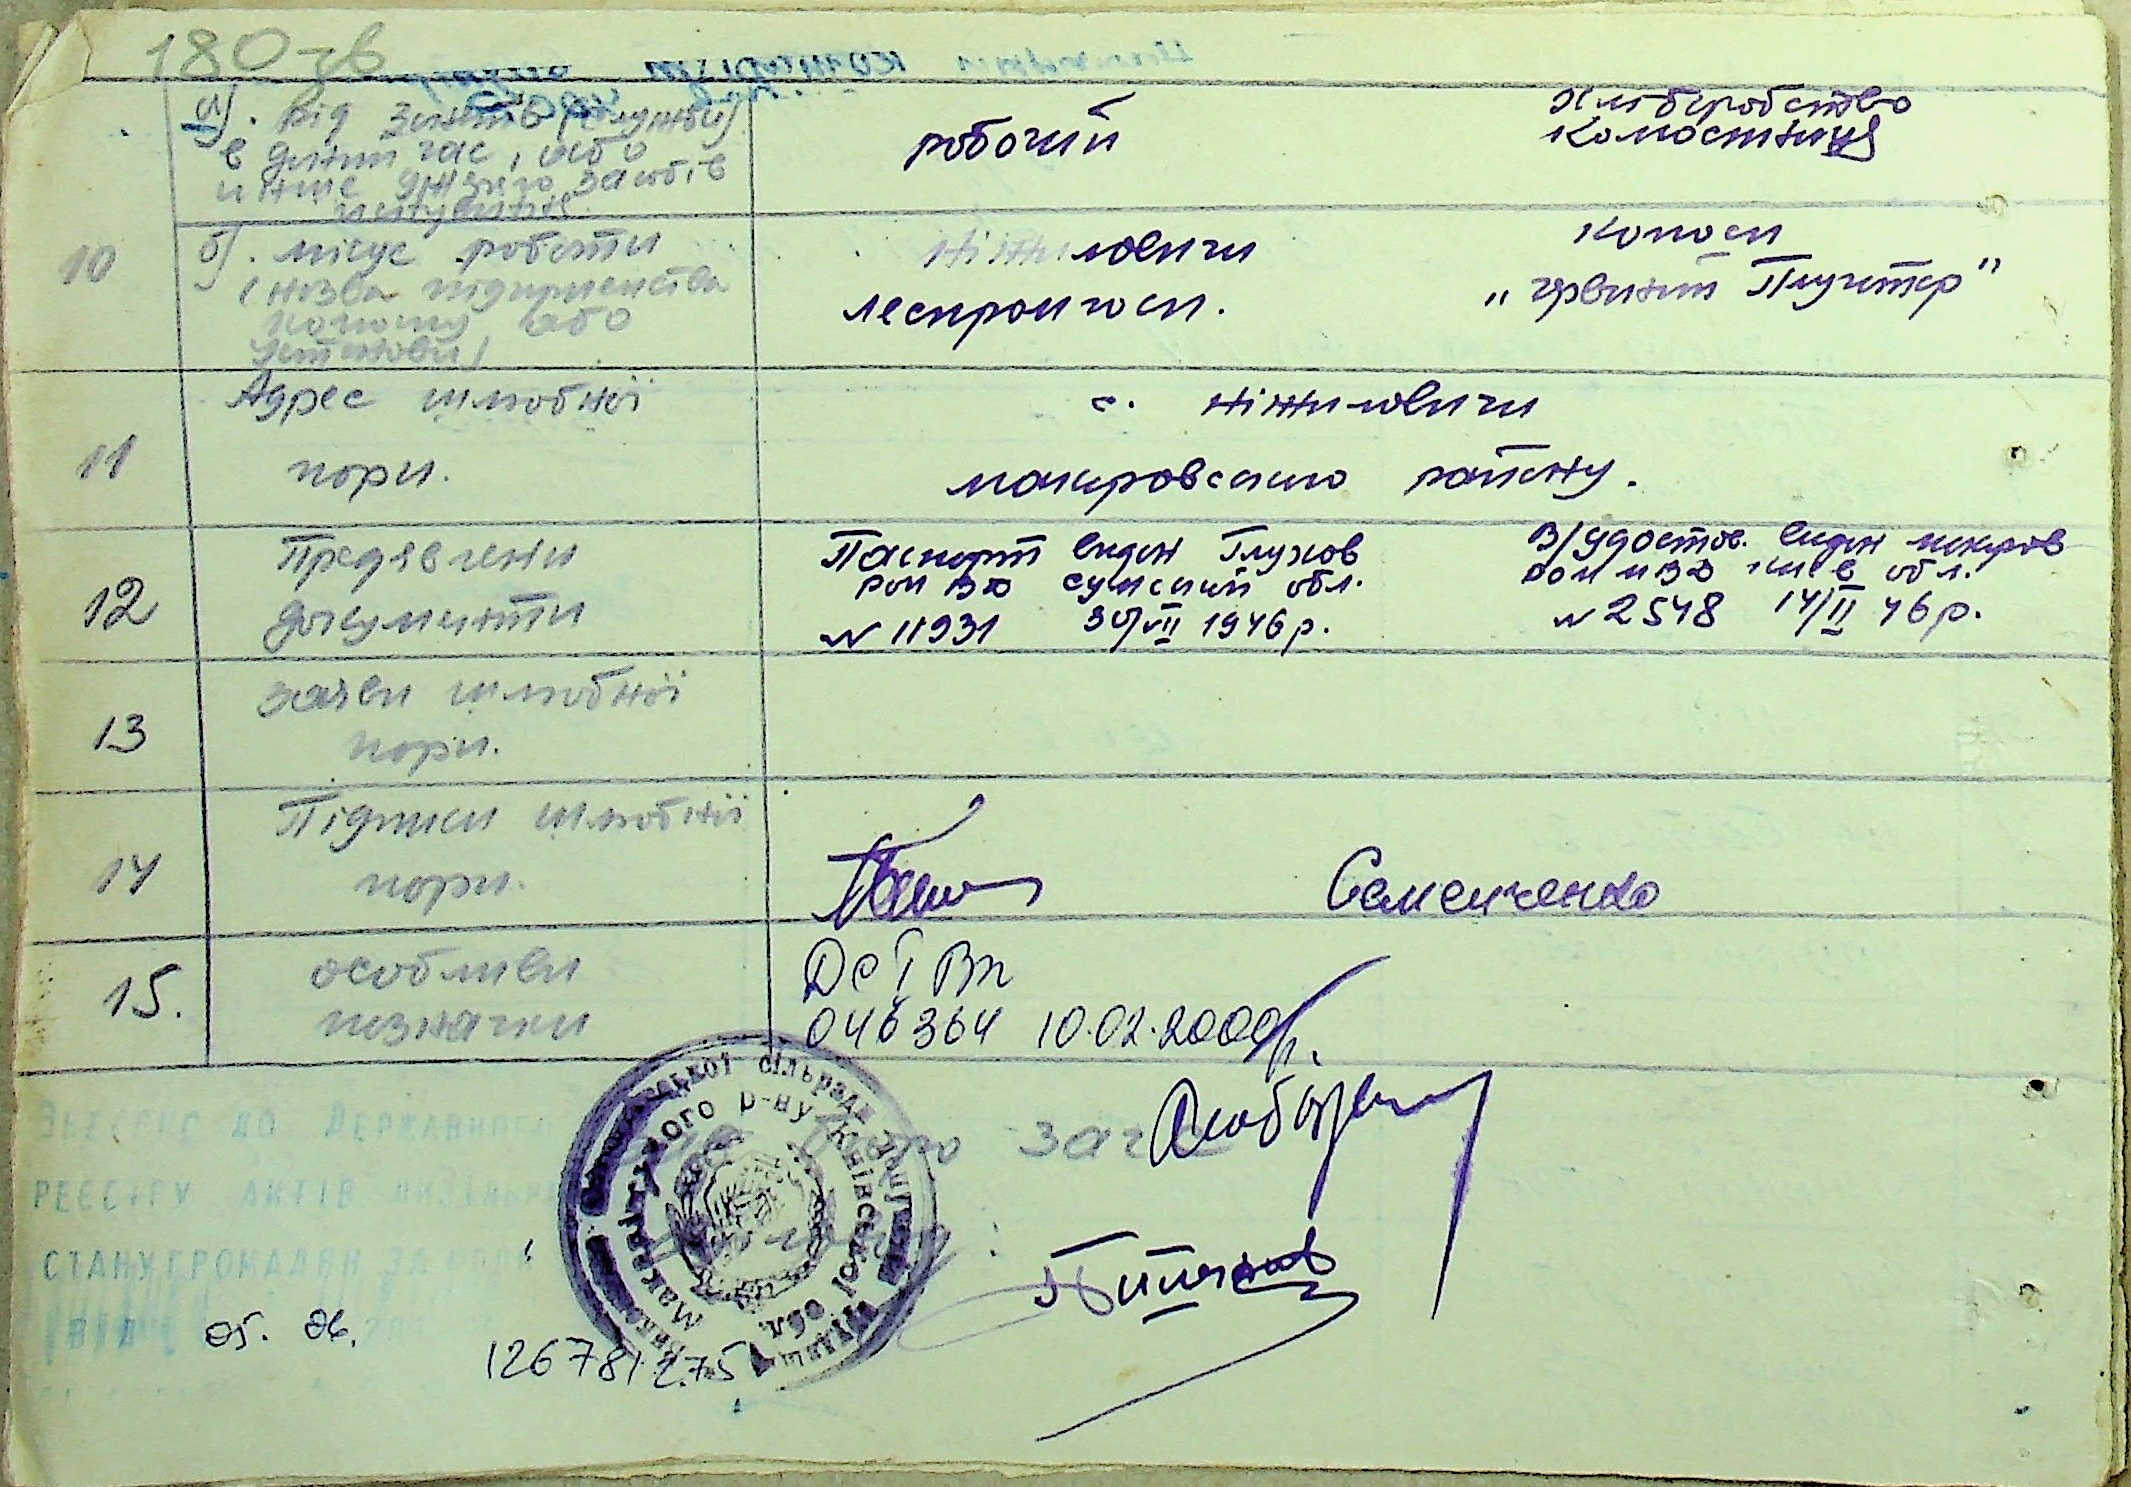 180 зв
а). Від занять (служби)
в даний час, або
инше джерело засобів
робочий
Хліборобство
Колгоспниця
10
б). місце роботи
(назва підприємства
колгоспу або
установи)
Ніжиловичи
леспромгосп.
колгосп
„Червоний Плугатар"
11
Адрес шлюбної
пари.
с. Ніжиловичи
макаровського району.
12
Предявлени
документи
Паспорт видан Глухов
сумский обл.
N 11931 30/VII 1946 р.
В/удостов. видан макаров
ром мвд киев обл.
N 2548 14/II 46 р.
13
Заяви шлюбної
пари.
14
Підписи шлюбної
пари.
Семенченко
15.
особливи
позначки
046364 10.02.2000р.
сільради
Макарівського р-ну Київської обл.
загс
ВНЕСЕНО ДО ДЕРЖАВНОГО
РЕЄСТРУ АКТІВ ЦИВІЛЬНОГО
СТАНУ ГРОМАДЯН ЗА
ВІД 05. 06.